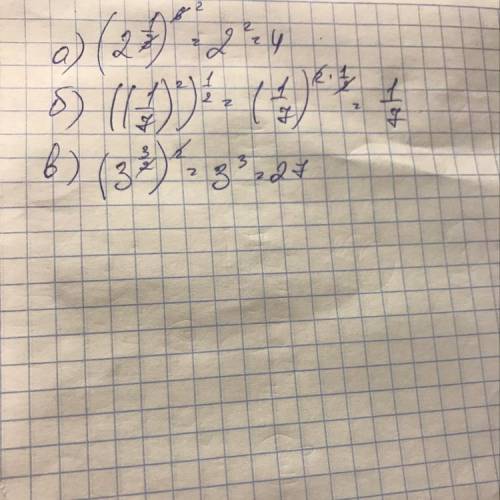 а) (2^(1/3))^6 ² = 2² = 4
б) ((1/7)²)^(1/2) = (1/7)^(2·1/2) = 1/7
в) (3^(3/2))² = 3³ = 27